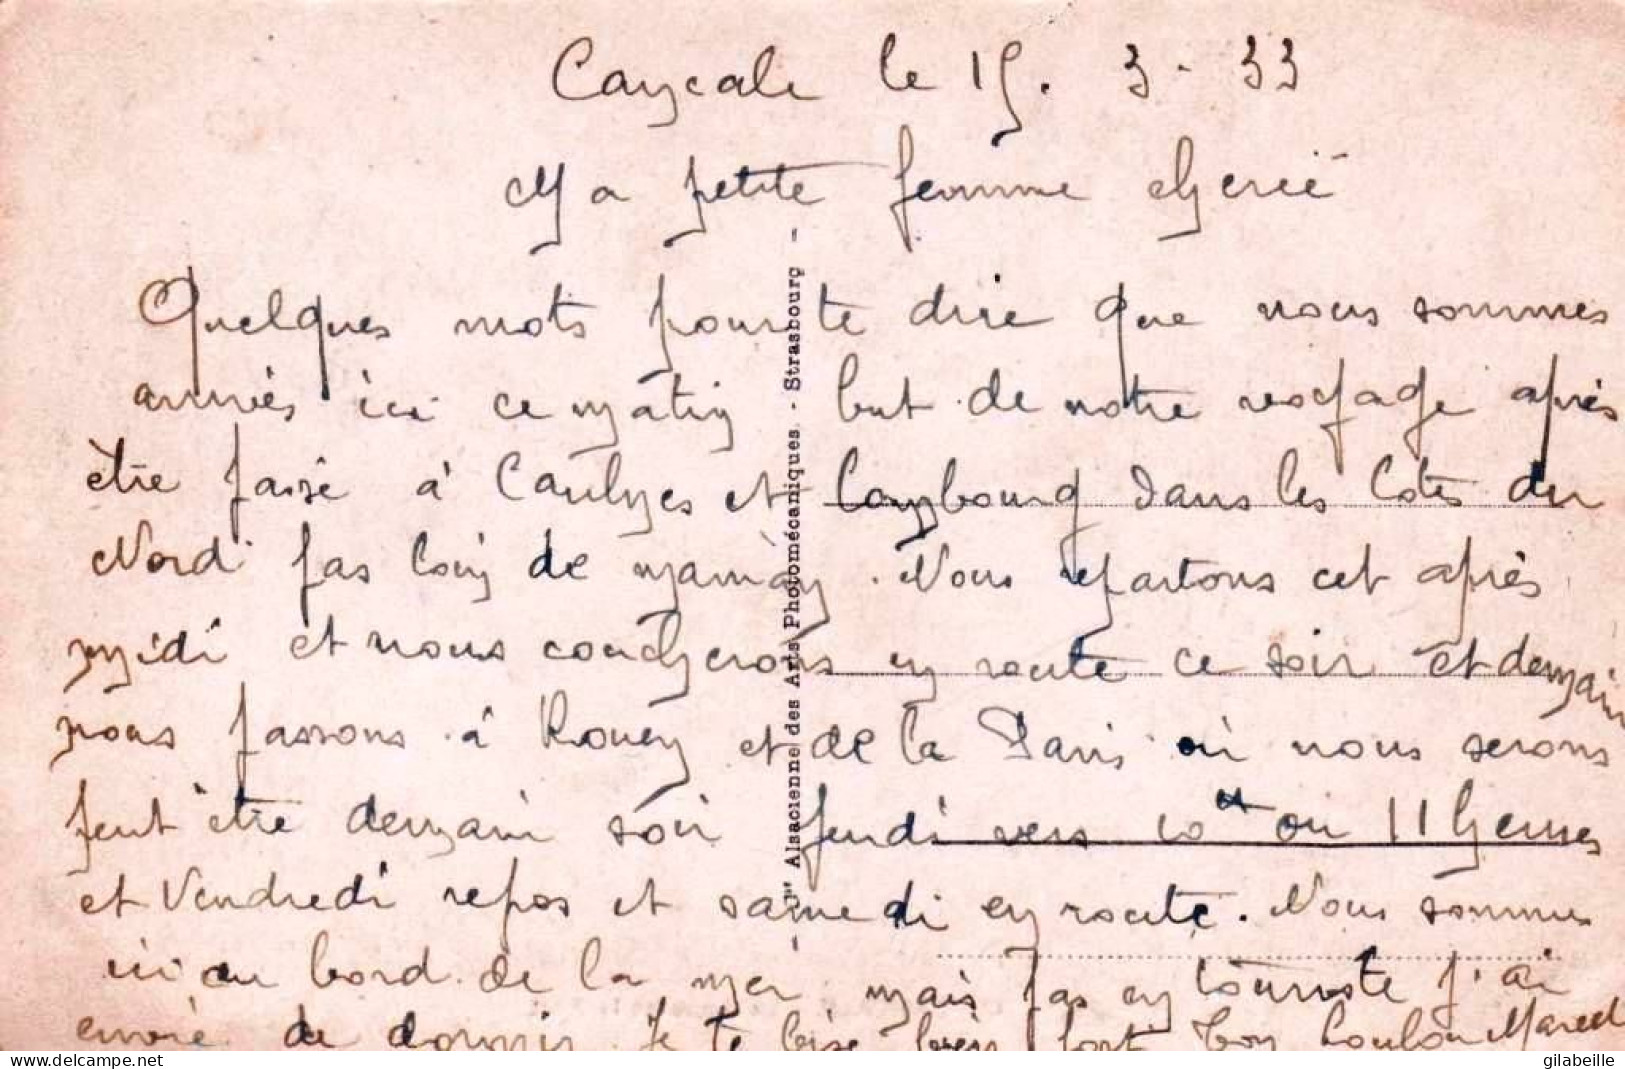 Cancale le 15. 3 - 33
Ma petite femme cherié
Quelques mots pour te dire que nous sommes
arrivés ici ce matin but de notre voyage après
être passé à Caulnes et Combourg dans les Cotes du
Nord pas loin de maman. Nous repartons cet après
midi et nous coucherons en route ce soir et demain
nous passons à Rouen et de la Paris où nous serons
peut être demain soir jeudi vers 10h ou 11 heures
et Vendredi repos et samedi en route. Nous sommes
ici au bord de la mer mais pas en touriste j'ai
envie de dormir. Je te bise bien fort ton Loulou Marcel
Cie Alsacienne des Arts Photomécaniques - Strasbourg -
gilabeille